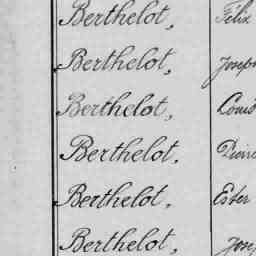 Berthelot, Félix
Berthelot, Joseph
Berthelot, Louis
Berthelot, Pierre
Berthelot, Ester
Berthelot, Josep